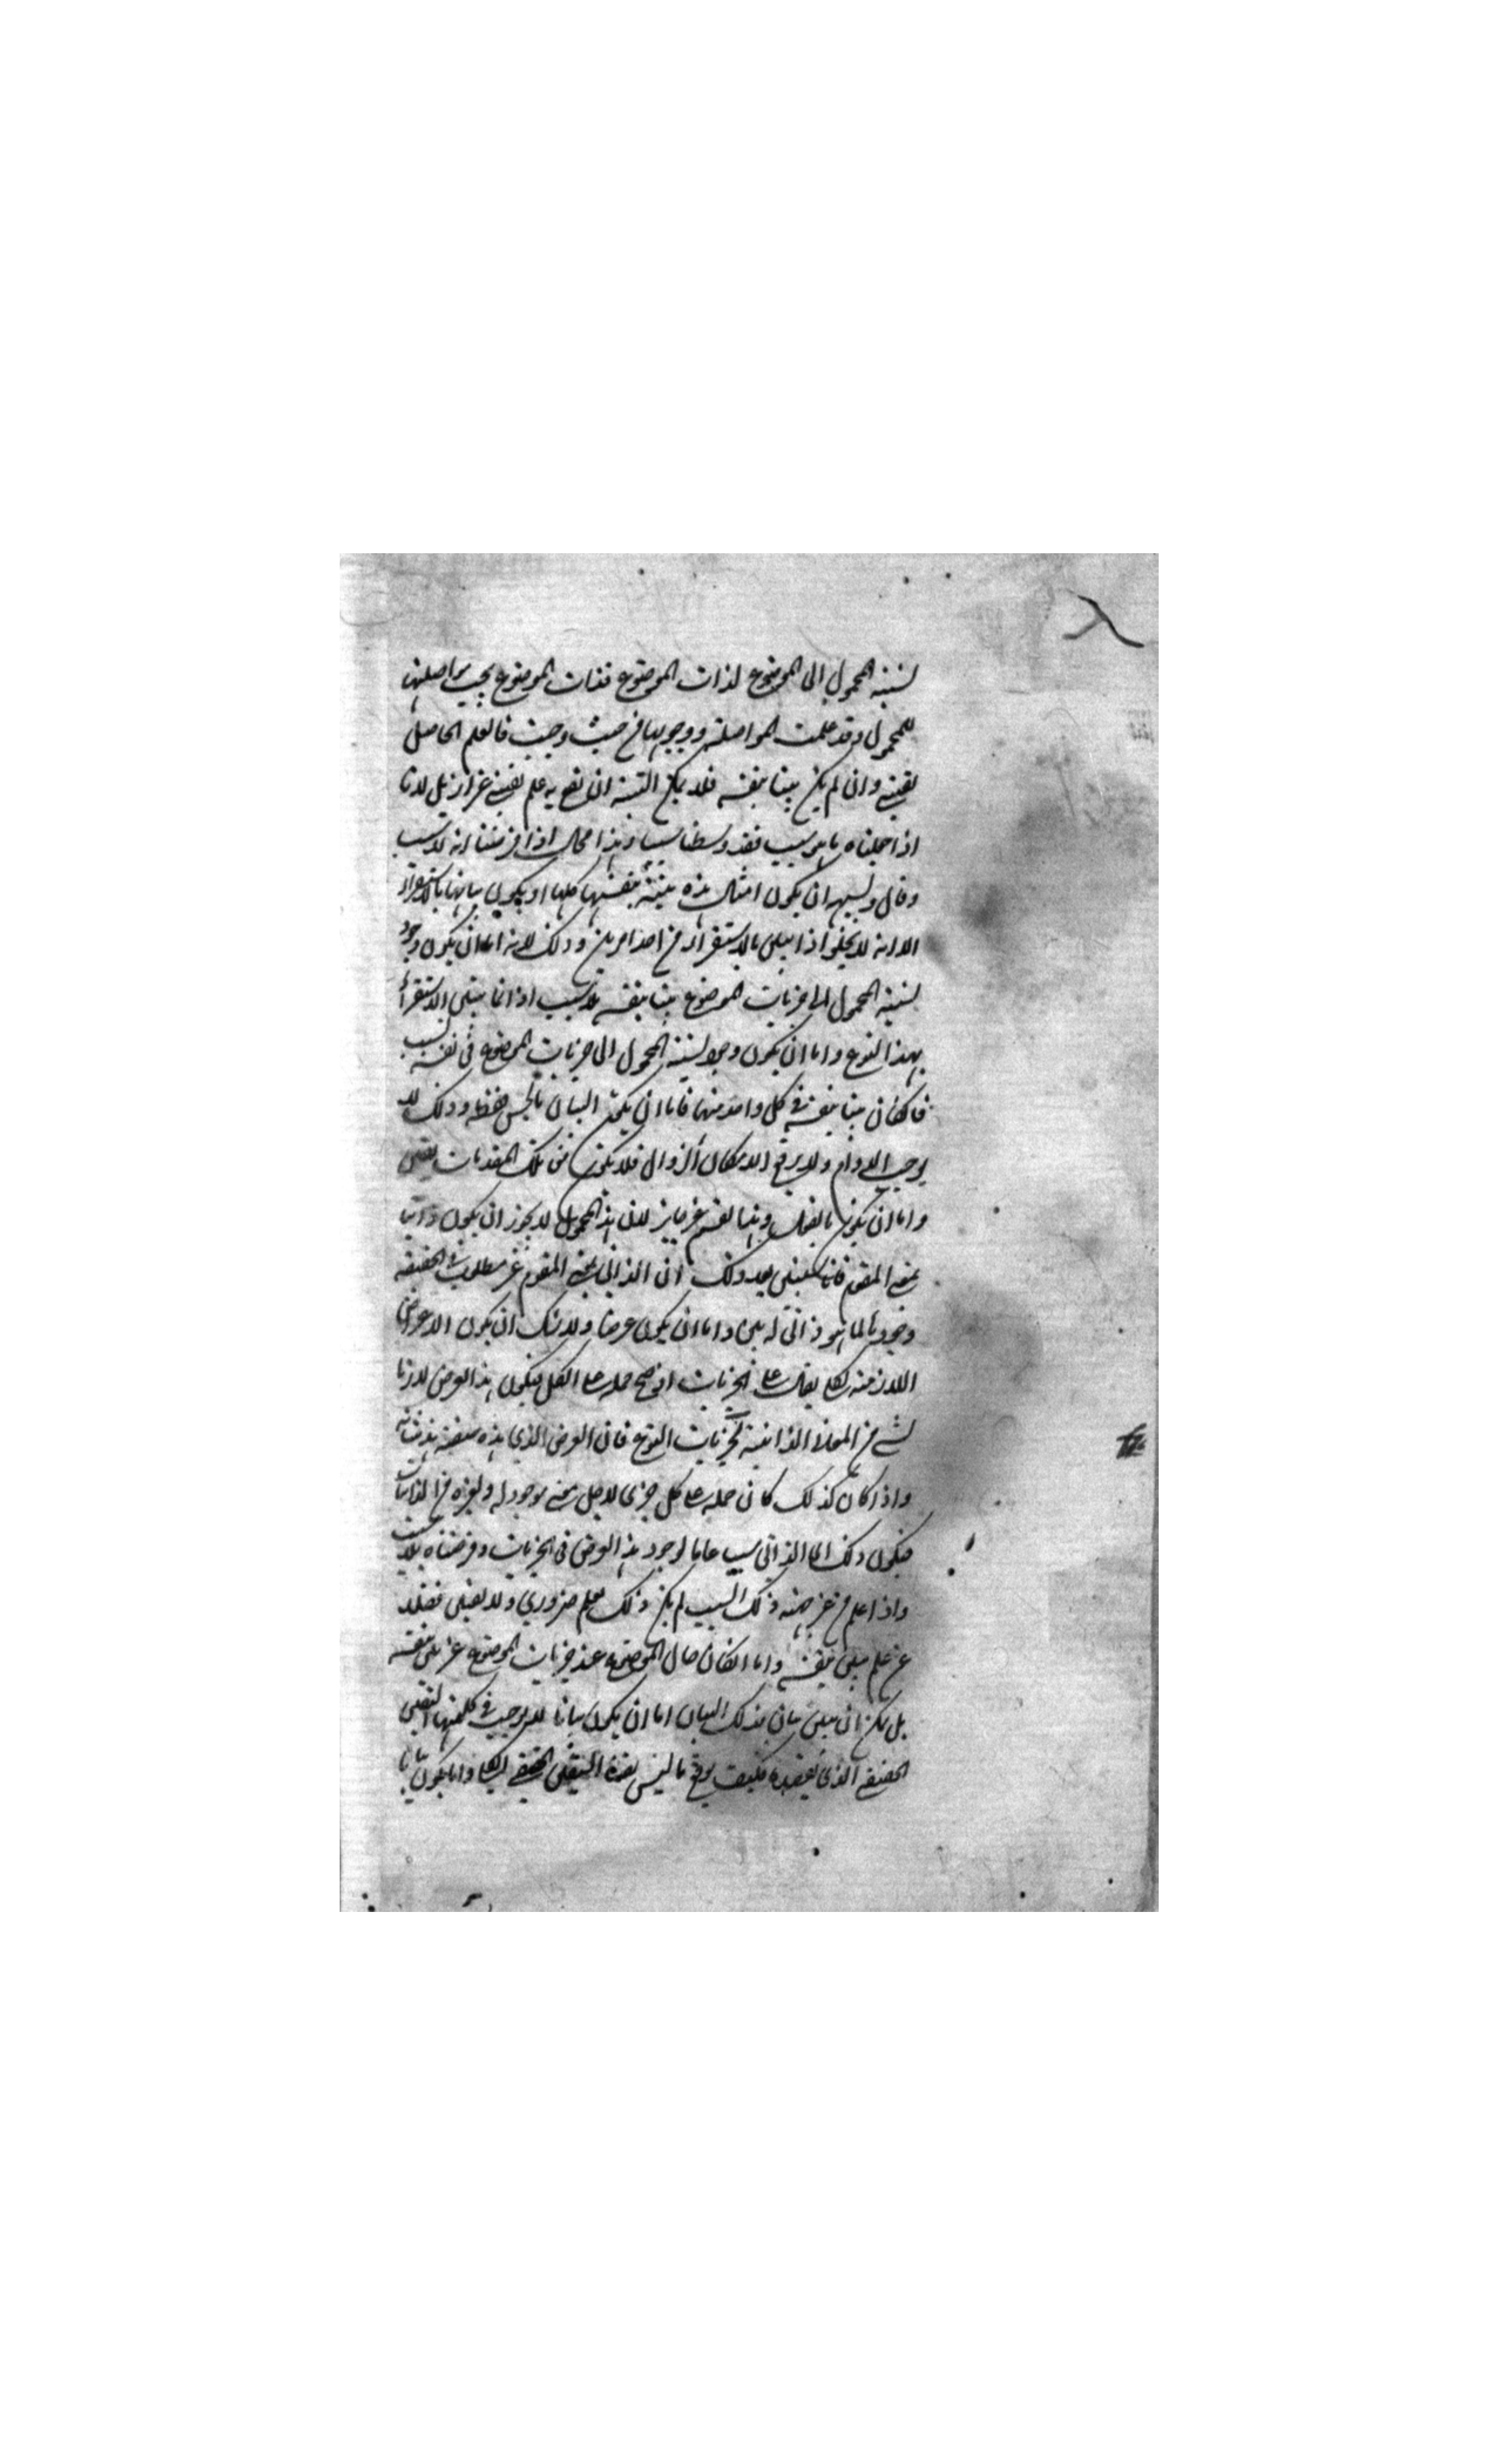 لنسبة المحمول الى الموضوع لذات الموضوع فذات الموضوع يجب مواصلتها
للمحمول وقد علمت المواصلة ووجوبها من حيث وجبت فالعلم الحاصل
يقيني وان لم يكن بينا بنفسه فلا يمكن البتة ان يقع به علم يقيني غير زايل لانا
اذا جعلنا ما ليس بسبب فقد وسطنا سببا وهذا محال اذا فرضنا انه لا سبب
وقال ويشبه ان يكون امثال هذه بينة بنفسها كلها او يكون بيانها بالاستقراء
الا انه لا يخلو اذا تبين بالاستقراء من احد امرين وذلك لانه اما ان يكون وجود
نسبة المحمول الى جزئيات الموضوع بينا بنفسه بلا سبب اذ انما يتبين الاستقراء
بهذا النوع واما ان يكون وجود نسبة المحمول الى جزئيات الموضوع في نفسه بسبب
فان كان بينا بنفسه في كل واحد منها فاما ان يكون البيان بالحس فقط وذلك لا
يوجب الدوام ولا يرفع الامكان الزوال فلا يكون من تلك المقدمات يقين
واما ان يكون بالعقل وهذا القسم غير جايز لان هذا المحمول لا يجوز ان يكون ذاتيا
بمعنى المقوم فانا سنبين بعد ذلك ان الذاتي بمعنى المقوم غير مطلوب في الحقيقة
وجوده لما هو ذاتي له بين واما ان يكون عرضا ولا شك ان يكون الاعراض
اللازمة لكلي يقال على الجزئيات اذ صح حمله على الكل فيكون هذا العرض لازما
لشئ من المعاني الذاتية لجزئيات النوع فان العرض الذي هذه صفته هذا شانه
واذا كان كذلك كان حمله على كل جزئي لاجل معنى موجود له ولغيره من الذاتيات
فيكون ذلك الذاتي سببا عاما لوجود هذا العرض في الجزئيات وفرضناه بلا سبب
واذا علم من غير جهة ذلك السبب لم يكن ذلك بعلم ضروري ولا يقين فضلا
عن علم بين بنفسه واما ان كان حال الموضوع عند جزئيات الموضوع غير بين بنفسه
بل يمكن ان يتبين ببيان فذلك البيان اما ان يكون بيانا لا يوجب في كل منها اليقين
الحقيقي الذي نقصده فكيف يوقع ما ليس يقينا اليقين الحقيقي الكلي واما ان يكون بيانا